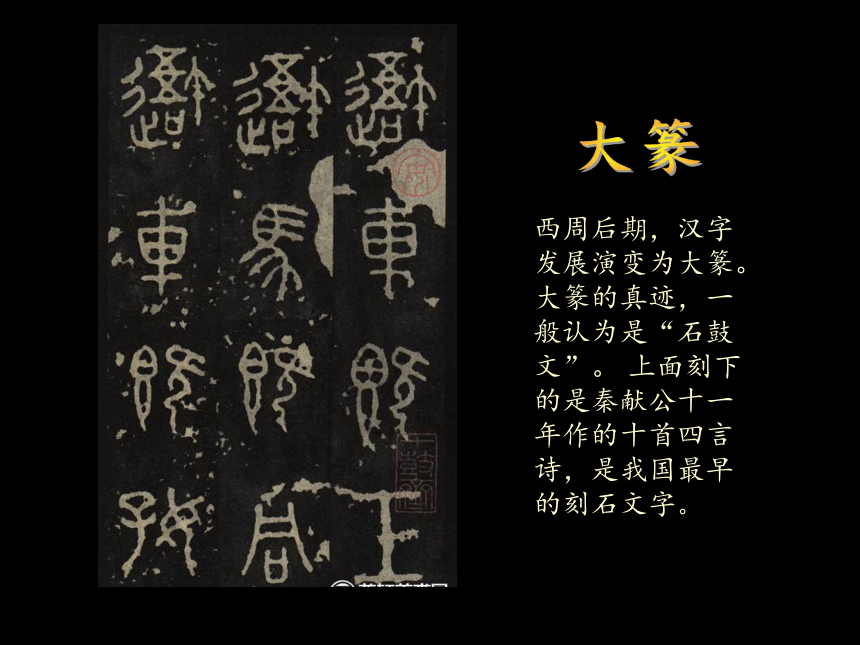 車既工
馬既同
車既好
大篆
西周后期，汉字
发展演变为大篆。
大篆的真迹，一
般认为是“石鼓
文”。 上面刻下
的是秦献公十一
年作的十首四言
诗，是我国最早
的刻石文字。